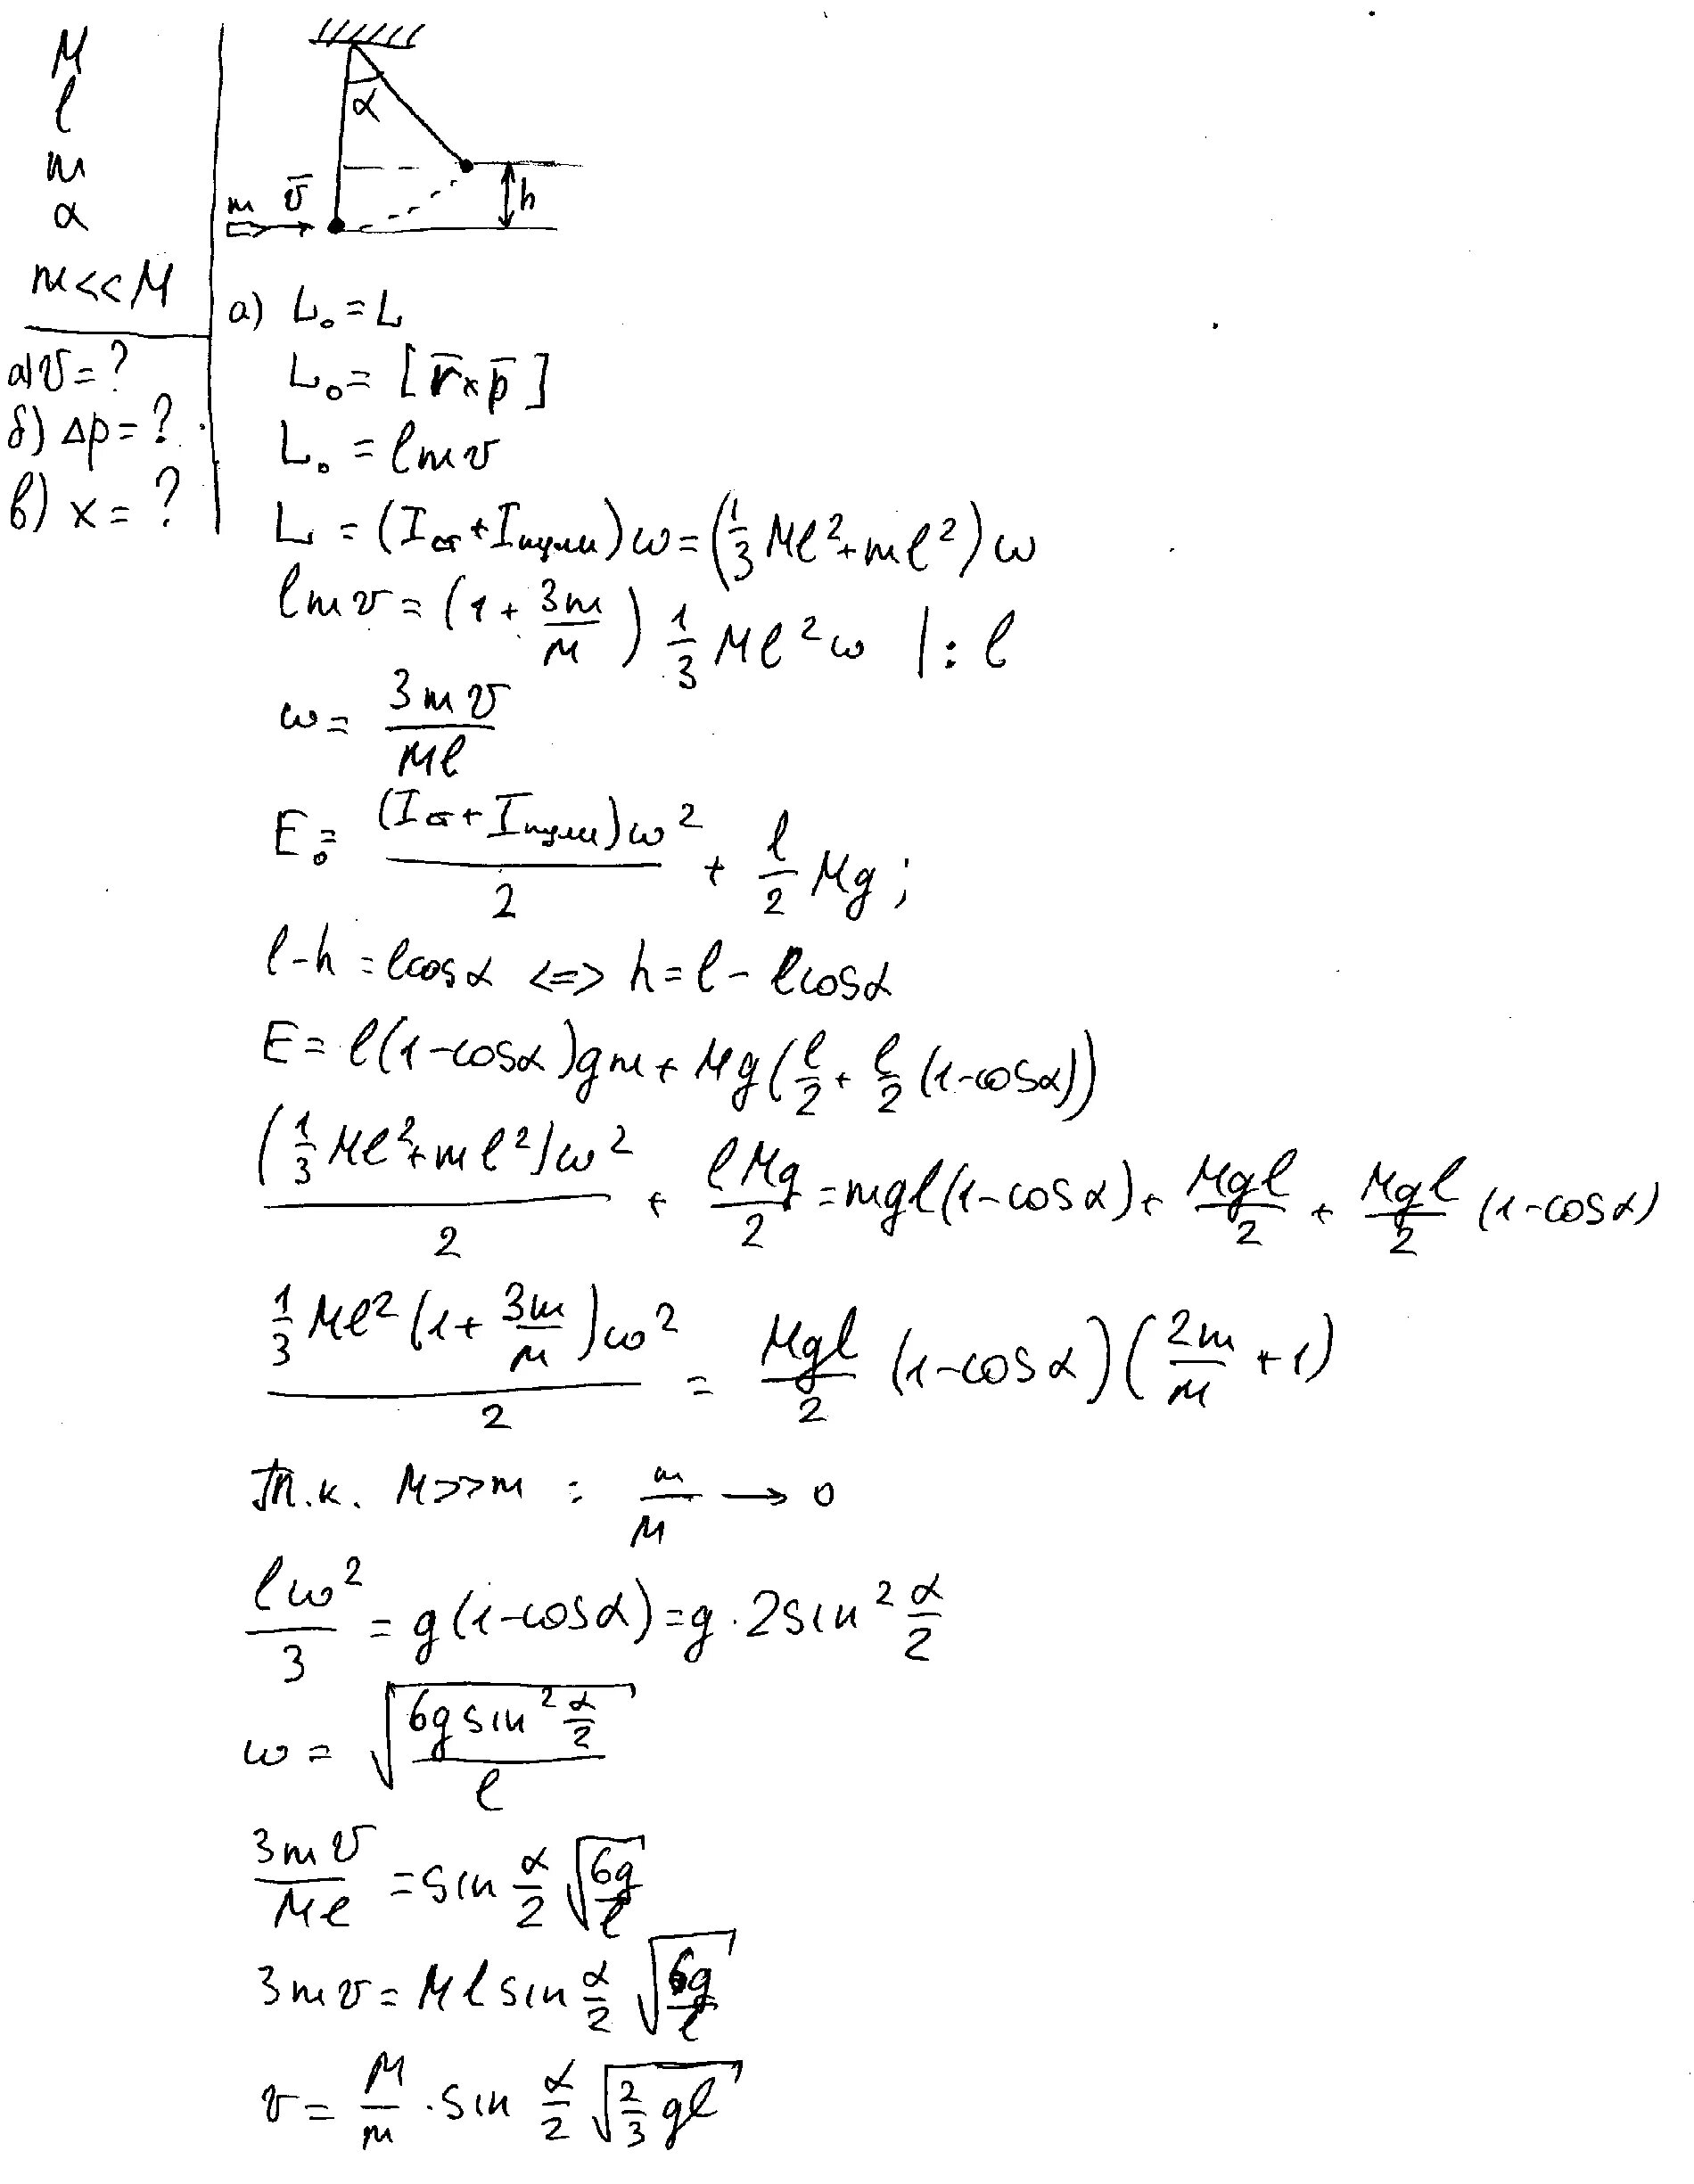 M
l
m
α
m<<M
а) v = ?
б) Δp = ?
в) x = ?
α
m v̅
h
а) L₀ = L
L₀ = [r̅ × p̅]
L₀ = lmv
L = (Iст + Iпули)ω = (1/3 Ml² + ml²)ω
lmv = (1 + 3m/M) 1/3 Ml²ω | : l
ω = 3mv/Ml
E₀ = (Iст + Iпули)ω²/2 + l/2 Mg;
l - h = lcosα <=> h = l - lcosα
E = l(1-cosα)gm + Mg(l/2 + l/2 (1-cosα))
(1/3 Ml² + ml²)ω²/2 + lMg/2 = mgl(1-cosα) + Mgl/2 + Mgl/2 (1-cosα)
1/3 Ml²(1 + 3m/M)ω²/2 = Mgl/2 (1-cosα)(2m/M + 1)
Т.к. M>>m : m/M → 0
lω²/3 = g(1-cosα) = g · 2sin² α/2
ω = √(6g sin² α/2 / l)
3mv/Ml = sin α/2 √(6g/l)
3mv = Ml sin α/2 √(6g/l)
v = M/m · sin α/2 √(2/3 gl)